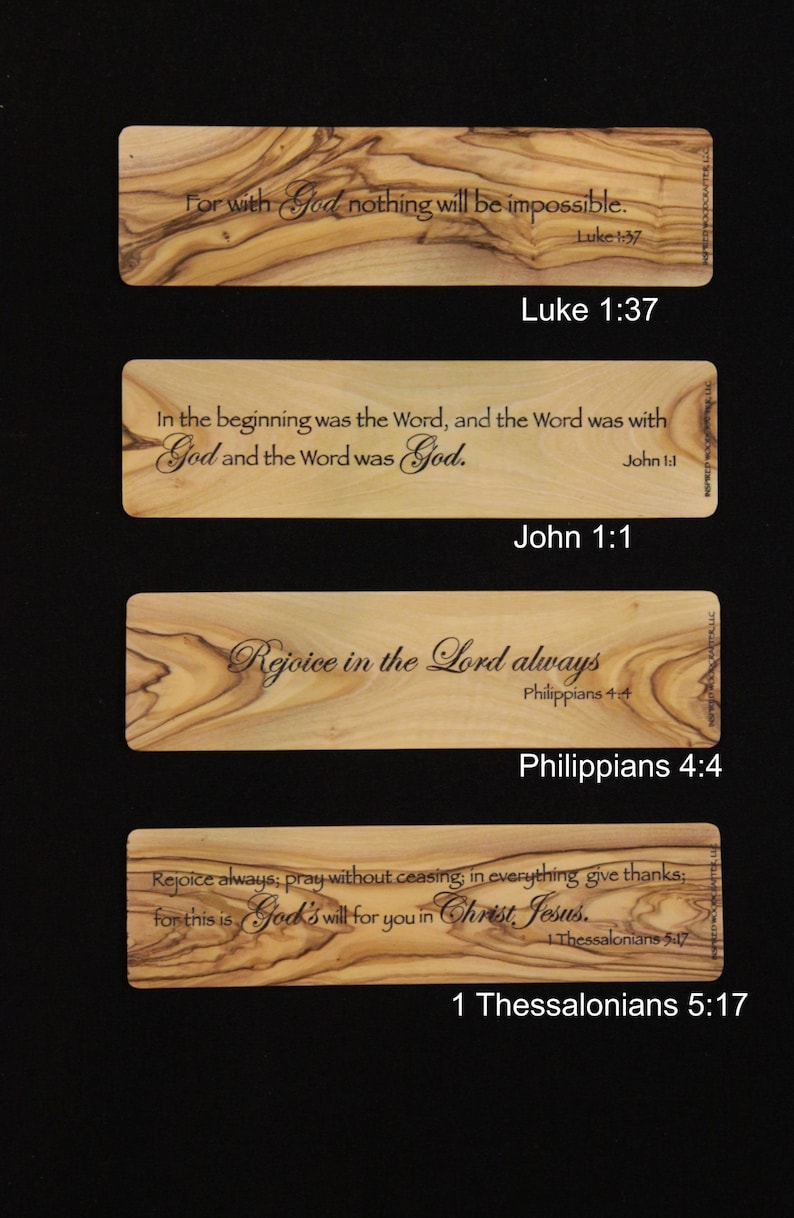 For with God nothing will be impossible.
Luke 1:37
INSPIRED WOODCRAFTER, LLC
Luke 1:37
In the beginning was the Word, and the Word was with
God and the Word was God.
John 1:1
INSPIRED WOODCRAFTER, LLC
John 1:1
Rejoice in the Lord always
Philippians 4:4
INSPIRED WOODCRAFTER, LLC
Philippians 4:4
Rejoice always; pray without ceasing; in everything give thanks;
for this is God's will for you in Christ Jesus.
1 Thessalonians 5:17
INSPIRED WOODCRAFTER, LLC
1 Thessalonians 5:17